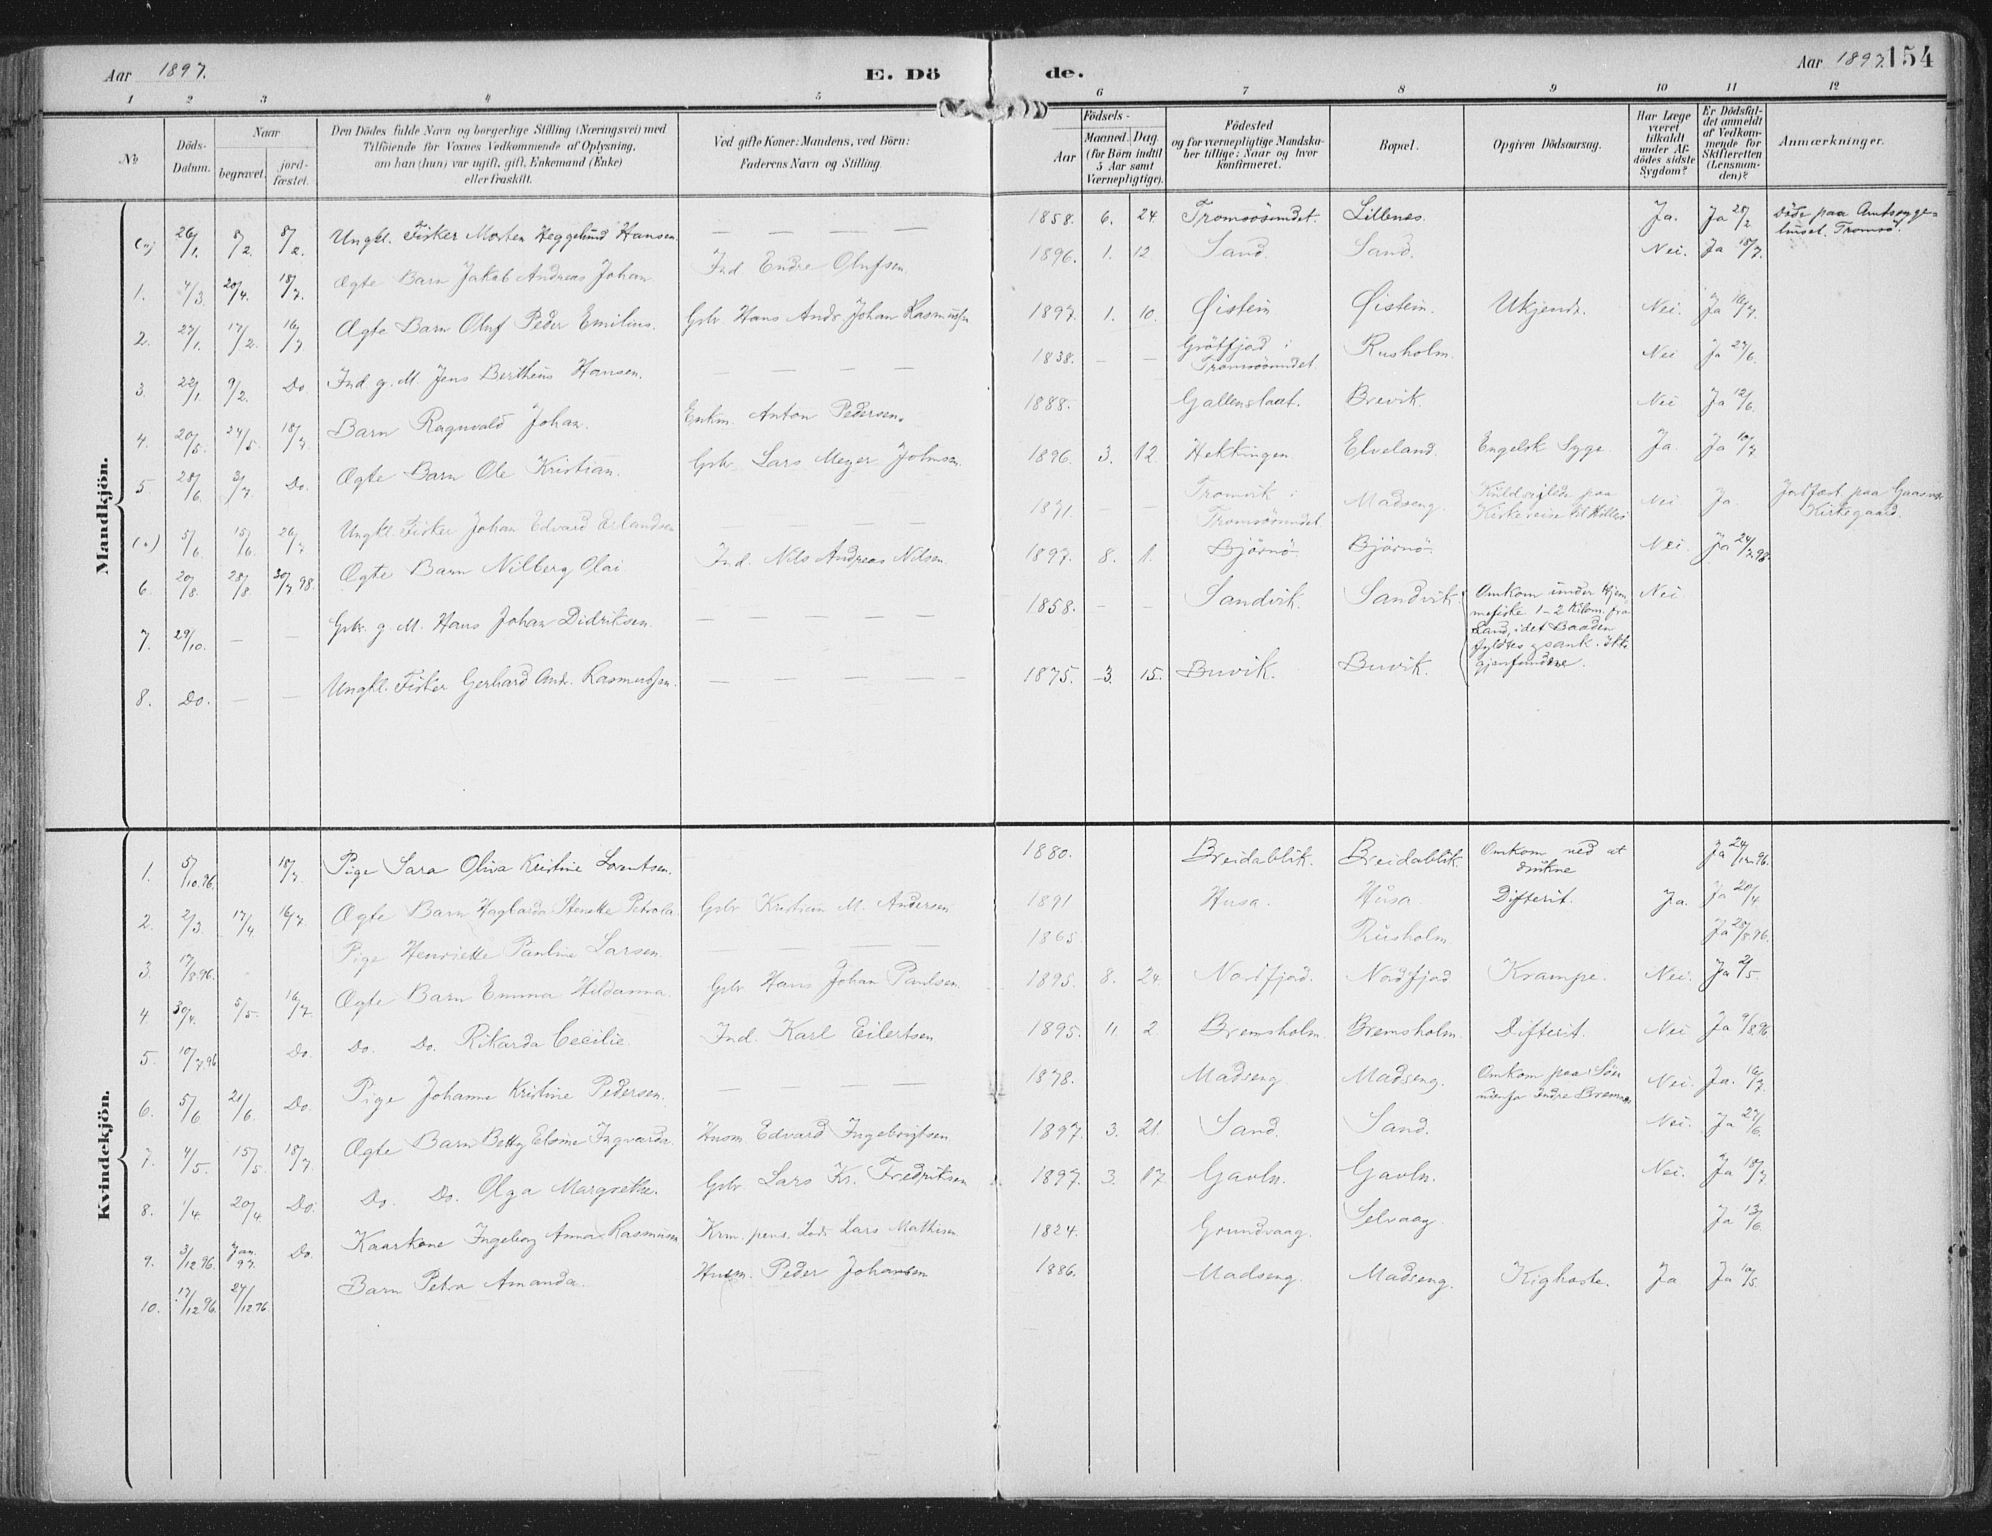 Aar 1897. E. Dö de. Aar 1897. 154
1 2 3 4 5 6 7 8 9 10 11 12
No
Döds-Datum.
Naar
begravet.
jord-fæstet.
Den Dödes fulde Navn og borgerlige Stilling (Næringsvei) med
Tilföiende for Voxnes Vedkommende af Oplysning,
om han (hun) var ugift, gift, Enkemand (Enke)
eller fraskilt.
Ved gifte Koner: Mandens, ved Börn:
Faderens Navn og Stilling
Födsels-
Aar
Maaned. Dag.
(for Börn indtil
5 Aar samt
Værnepligtige).
Födested
og for værnepligtige Mandska-
ber tillige: Naar og hvor
konfirmeret.
Bopæl.
Opgiven Dödsaarsag.
Har Læge
været
tilkaldt
under Af-
dödes sidste
Sygdom?
Er Dödsfal-
det anmeldt
af Vedkom-
mende for
Skifteretten
(Lensman-
den)?
Anmærkninger.
Mandkjön.
(a) 26/1. 8/2. 8/2. Ungkl. Fisker Morten Heggelund Hansen. — — — — 1858. 6. 24. Tromsösundet. Lillenes. Ja. Ja 28/2. Döde paa Amtssyge-
huset. Tromsö.
1. 4/3. 20/4. 18/7. Ægte Barn Jakob Andreas Johan. Ind. Endre Olufsen. 1896. 1. 12. Sand. Sand. Nei. Ja 18/7.
2. 27/1. 17/2. 16/7. Ægte Barn Oluf Peder Emilius. Gbr. Hans Andr. Johan Rasmussen 1897. 1. 10. Øistein Øistein. Ukjendt. Nei. Ja 16/7.
3. 22/1. 9/2. Do. Ind. g. M. Jens Bertheus Hansen. — — — — 1838. — — Grötfjord i
Tromsösundet. Rusholm. Nei Ja 27/6.
4. 20/5. 24/5. 18/7. Barn Ragnvald Johan. Enkm. Anton Pedersen. 1888. Gallenslaat. Brevik. Nei Ja 12/6.
5 28/6. 3/7. Do. Ægte Barn Ole Kristian. Gbr. Lars Meyer Johnsen. 1896. 3. 12. Hekkingen Elveland. Engelsk Syge. Ja. Ja 18/7.
5/6. 15/6. 26/7. Ungkl. Fisker Johan Edvard Erlandsen — — — 1871. — — Tromvik i
Tromsösundet Madseng. Kuldseilede paa
Kirkereise til Hilles Nei Ja. Jordfæst paa
Kirkegaard.
6. 20/8. 28/8. 30/7 98. Ægte Barn Nilberg Olai Ind. Nils Andreas Nilsen 1897. 8. 1. Björnö. Björnö. Nei. Ja 24/7 98.
7. 29/10. — — Gbr. g. M. Hans Johan Didriksen. — — — — 1858. — — Sandvik. Sandvik. Omkom under Hjem-
mefiske 1-2 Kilom. fra
Land, idet Baaden
fyldtes og sank. Ikke
gjenfundne. Nei
8. Do. — — Ungkl. Fisker Gerhard Andr. Rasmussen. — — — — — 1875. 3. 15. Buvik. Buvik.
Kvindekjön.
1. 5/10.96. 18/7. Pige Sara Oliva Kristine Lorentsen. 1880. Breidablik. Breidablik. Omkom ved at
drukne Ja 24/12.96.
2. 2/3. 17/4. 16/7. Ægte Barn Haglarda Stenette Petrola. Gbr. Kristian M. Andersen 1891 Husa. Husa Difterit. Ja. Ja 20/4.
3. 17/8 96. Pige Henriette Pauline Larsen. — — — 1865 Rusholm Ja 28/8 96.
4. 30/4. 5/5. 16/7. Ægte Barn Emma Hildanna. Gbr. Hans Johan Paulsen. 1895. 8. 24. Nordfjord. Nordfjord Krampe. Nei. Ja 2/5.
5. 10/7.96 Do. Do. Do. Rikarda Cecilie. Ind. Karl Eilertsen 1895. 11. 2. Bremsholm. Bremsholm. Difterit. Nei Ja 9/8 96
6. 5/6 21/6. Do. Pige Johanne Kristine Pedersen. — — — 1878. Madseng Madseng. Omkom paa Söen
Indre Nei. Ja. 16/7.
7. 4/5. 15/5. 18/7. Ægte Barn Betty Elsine Ingvarda. Husm. Edvard Ingebrigtsen 1897. 3. 21. Sand. Sand. Nei. Ja 27/6.
8. 1/4. 20/4 Do. Do. Do. Olga Margrethe. Gbr. Lars Kr. Fredriksen 1897. 3. 17. Gavln. Gavln. Nei. Ja 18/7.
9. 3/12 96. Jan. 97. Do. Kaarkone Ingeborg Anna Rasmussen Lars Mathisen 1824. Grundvaag. Selvaag. Ja 13/6.
10. 17/12 96. 27/12 96. Barn Petra Amanda. Husm. Peder Johansen 1886. Madseng. Madseng. Kighoste. Ja Ja 10/5.